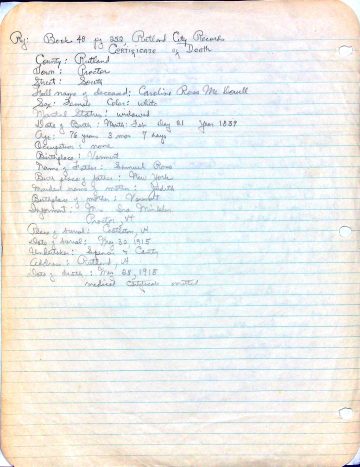 Rutland City Records
Certificate of Death
County: Rutland
Town: Proctor
Street: South
Full name of deceased: Caroline Ross
Sex: Female Color: white
Marital Status: widowed
Date of Birth: Month: Feb Day 21 Year 1839
Age: 76 years 3 mos 7 days
Occupation: none
Birthplace: Vermont
Name of Father: Samuel Ross
Birth place of father: New York
Maiden name of mother: Judith
Birthplace of mother: Vermont
Informant:
Proctor, Vt
Place of burial: Castleton, Vt
Date of burial: May 30 1915
Undertaker:
Address: Rutland, Vt
Date of death: May 28, 1915
medical